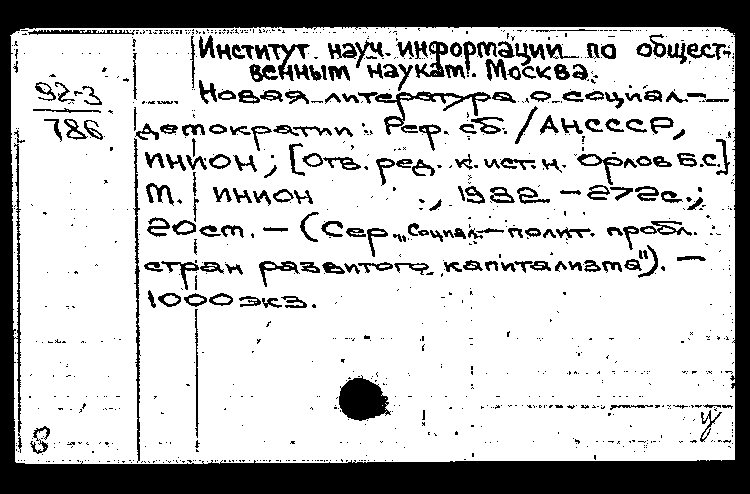 Институт науч. информации по общест-
венным наукам. Москва.
92-3
786
Новая литература о социал-
демократии: Реф. сб. / АН СССР,
ИНИОН; [Отв. ред. к.ист.н. Орлов Б.С.]
М.: ИНИОН, 1982. - 272с.;
20 ст. - (Сер. "Социал.-полит. пробл.
стран развитого капитализма"). -
1000 экз.
8
У